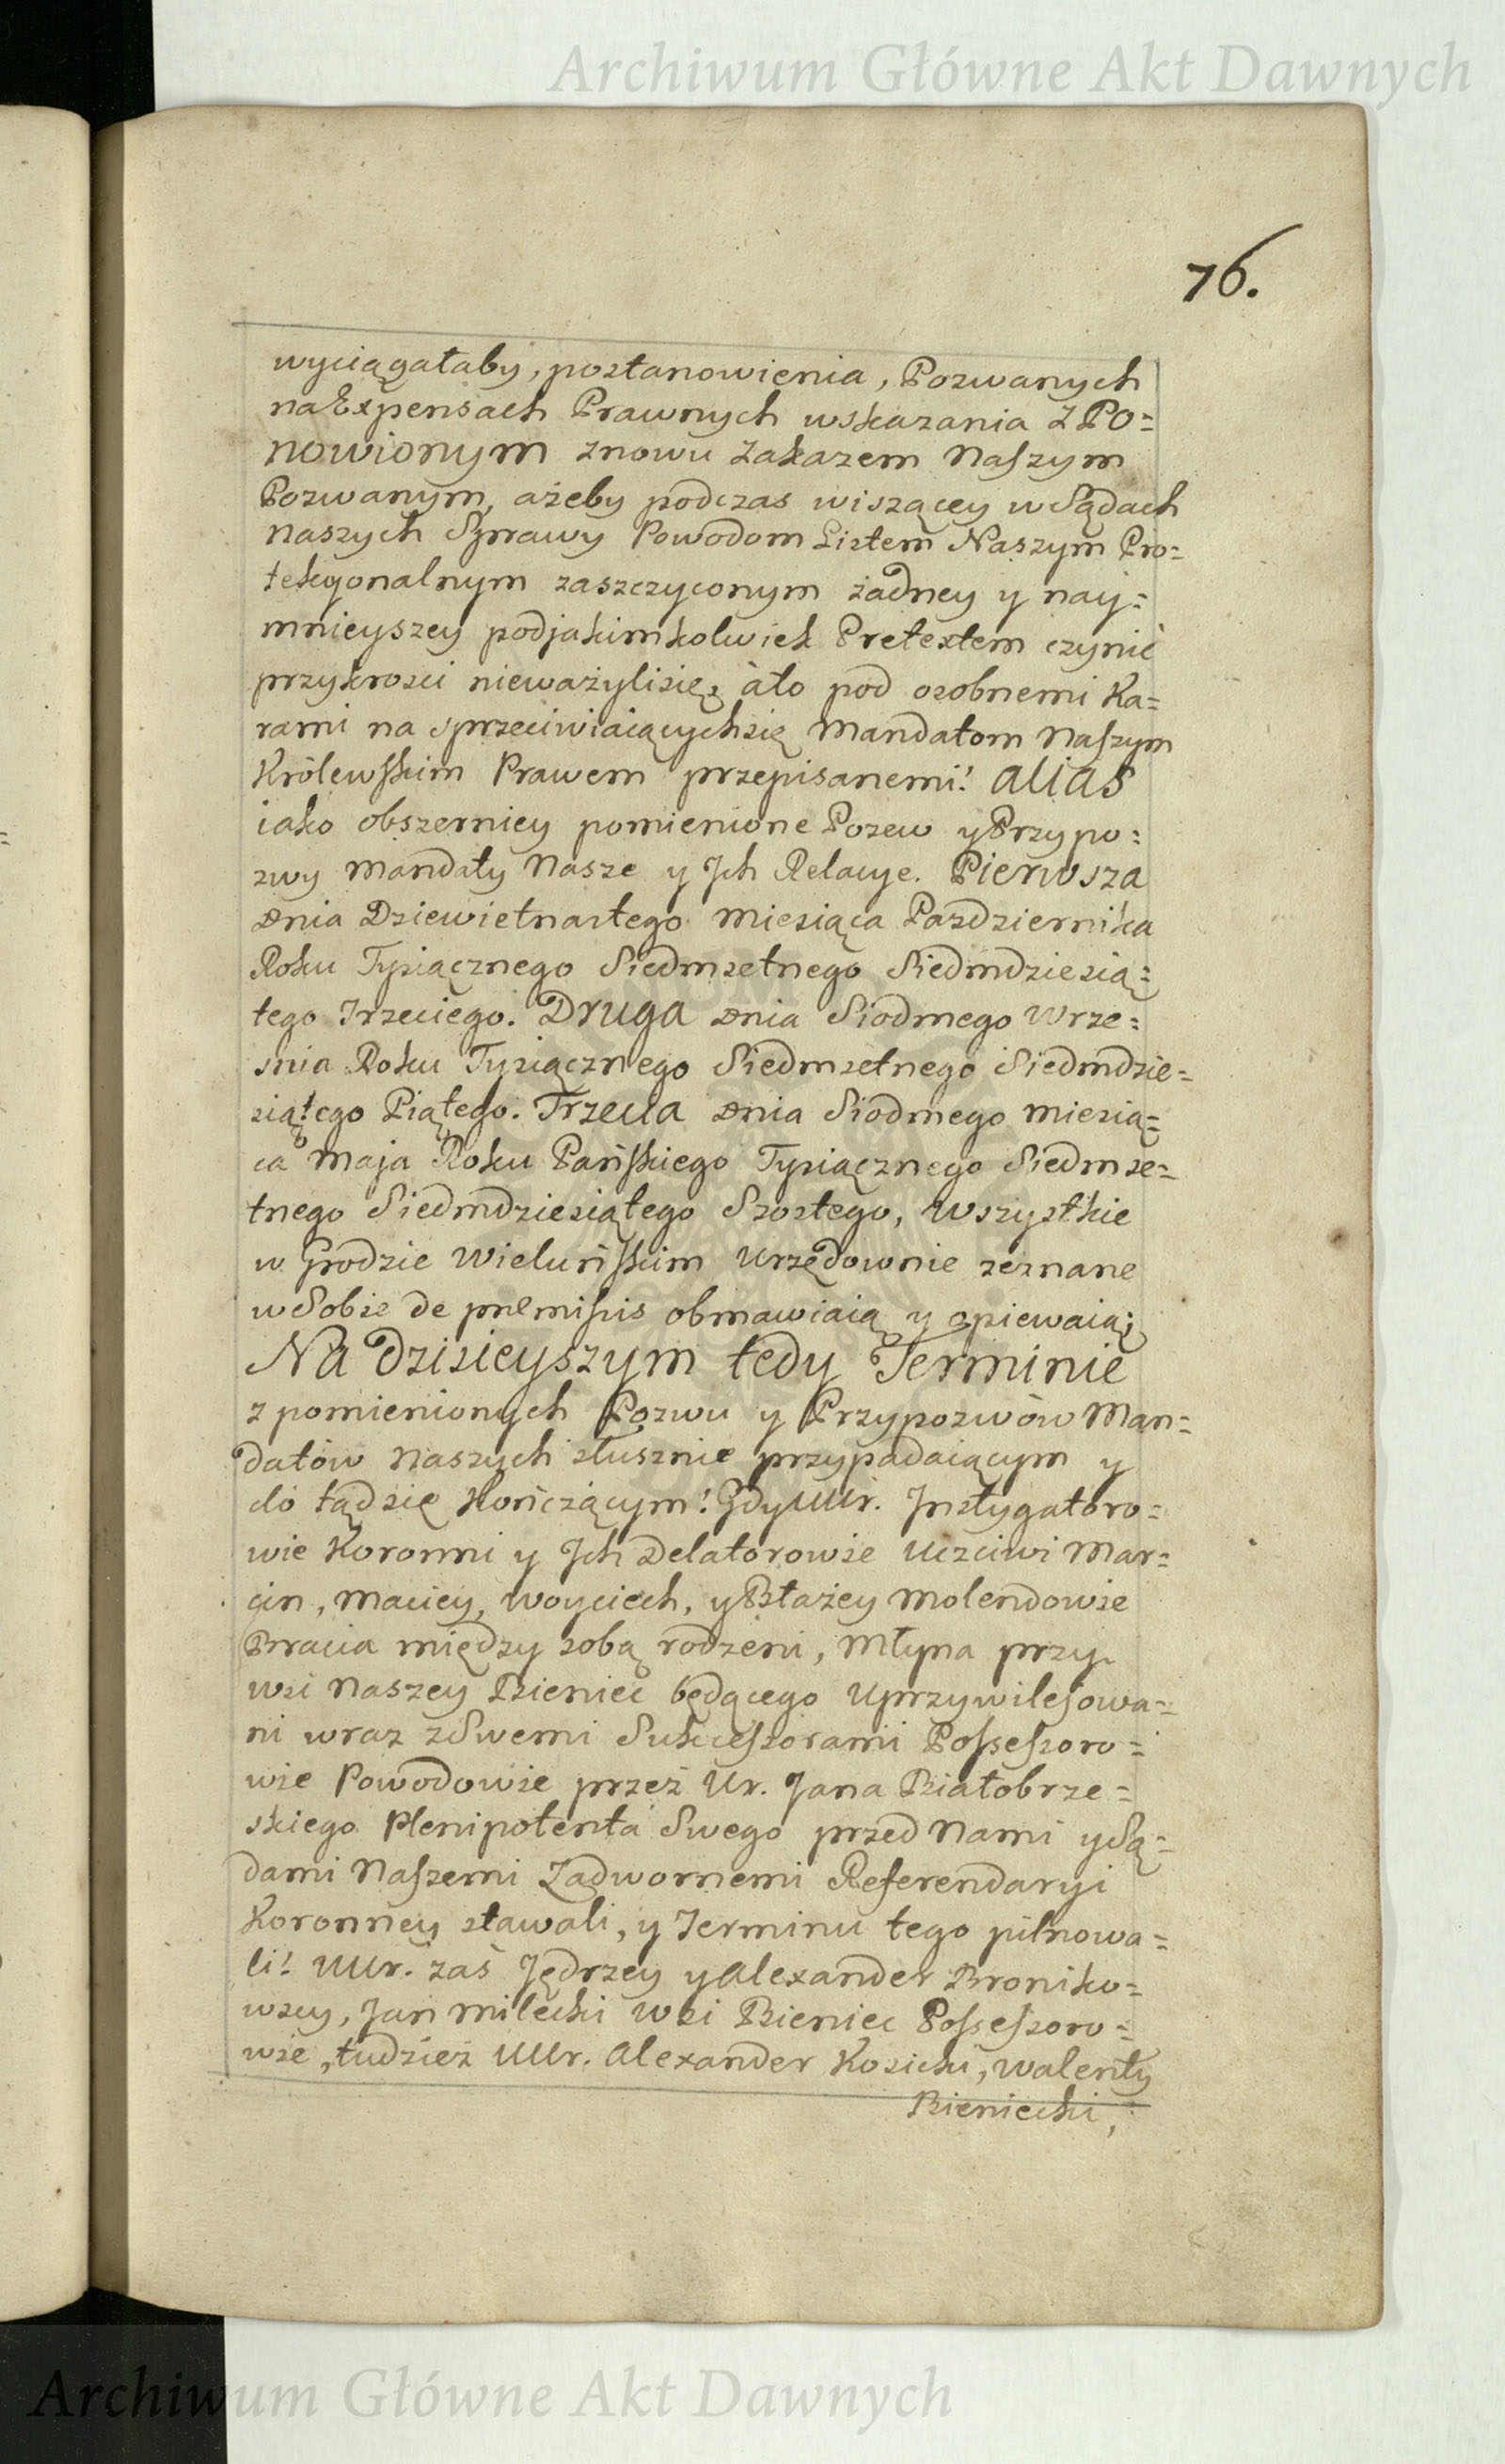 Archiwum Główne Akt Dawnych
76.
wyciągałaby, postanowienia, Pozwanych
na Expensach Prawnych wskazania z Po=
nowionym znowu Zakazem Naszym
Pozwanym, ażeby podczas wiszącey w Sądach
Naszych Sprawy Powodom Listem Naszym Pro=
tekcyonalnym zaszczyconym żadney y nay=
mnieyszey podjakimkolwiek Pretextem czynić
przykrosci nieważylisię, àto pod osobnemi Ka=
rami na sprzeciwiaiącychsię Mandatom Naszym
Królewskim Prawem przepisanemi! alias
iako obszerniey pomienione Pozew y Przypo=
zwy Mandaty Nasze y Jch Relacye. Pierwsza
Dnia Dziewietnastego Miesiąca Pazdziernika
Roku Tysiącznego Siedmsetnego Siedmdziesią=
tego Trzeciego. Druga Dnia Siodmego Wrze=
snia Roku Tysiącznego Siedmsetnego Siedmdzie=
siątego Piątego. Trzecia Dnia Siodmego Miesią=
ca Maja Roku Pańskiego Tysiącznego Siedmse=
tnego Siedmdziesiątego Szostego, wszystkie
w Grodzie Wieluńskim Urzędownie zeznane
w Sobie de præmissis obmawiaią y opiewaią;
Na Dzisieyszym tedy Terminie
z pomienionych Pozwu y Przypozwów Man=
datów Naszych słusznie przypadaiącym y
do tąd się Kończącym! Gdy UUr. Jnstygatoro=
wie Koronni y Jch Delatorowie Uczciwi Mar=
cin, Maciey, Woyciech, y Błażey Molendowie
Bracia między sobą rodzeni, Młyna przy
wsi Naszey Bieniec będącego Uprzywilejowa=
ni wraz z Swemi Sukcessorami Possessoro=
wie Powodowie przez Ur. Jana Białobrze=
skiego Plenipotenta Swego przed Nami y Są=
dami Naszemi Zadwornemi Referendaryi
Koronney stawali, y Terminu tego pilnowa=
li! UUr. zaś Jędrzey y Alexander Broniko=
wscy, Jan Milecki Wsi Bieniec Possessoro=
wie, tudzież UUr. Alexander Kosicki, Walenty
Bieniecki,
Archiwum Główne Akt Dawnych